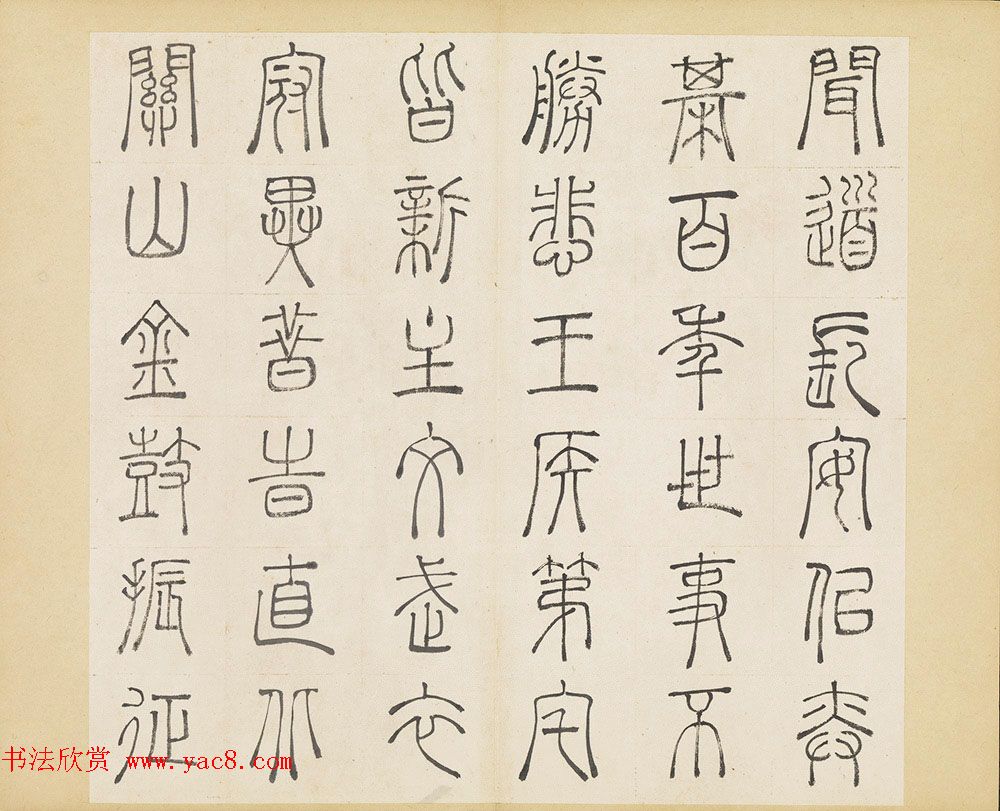 聞道長安似弈
棊百年世事不
勝悲王侯第宅
皆新主文武衣
冠異昔旹直北
關山金鼓振征
书法欣赏 www.yac8.com